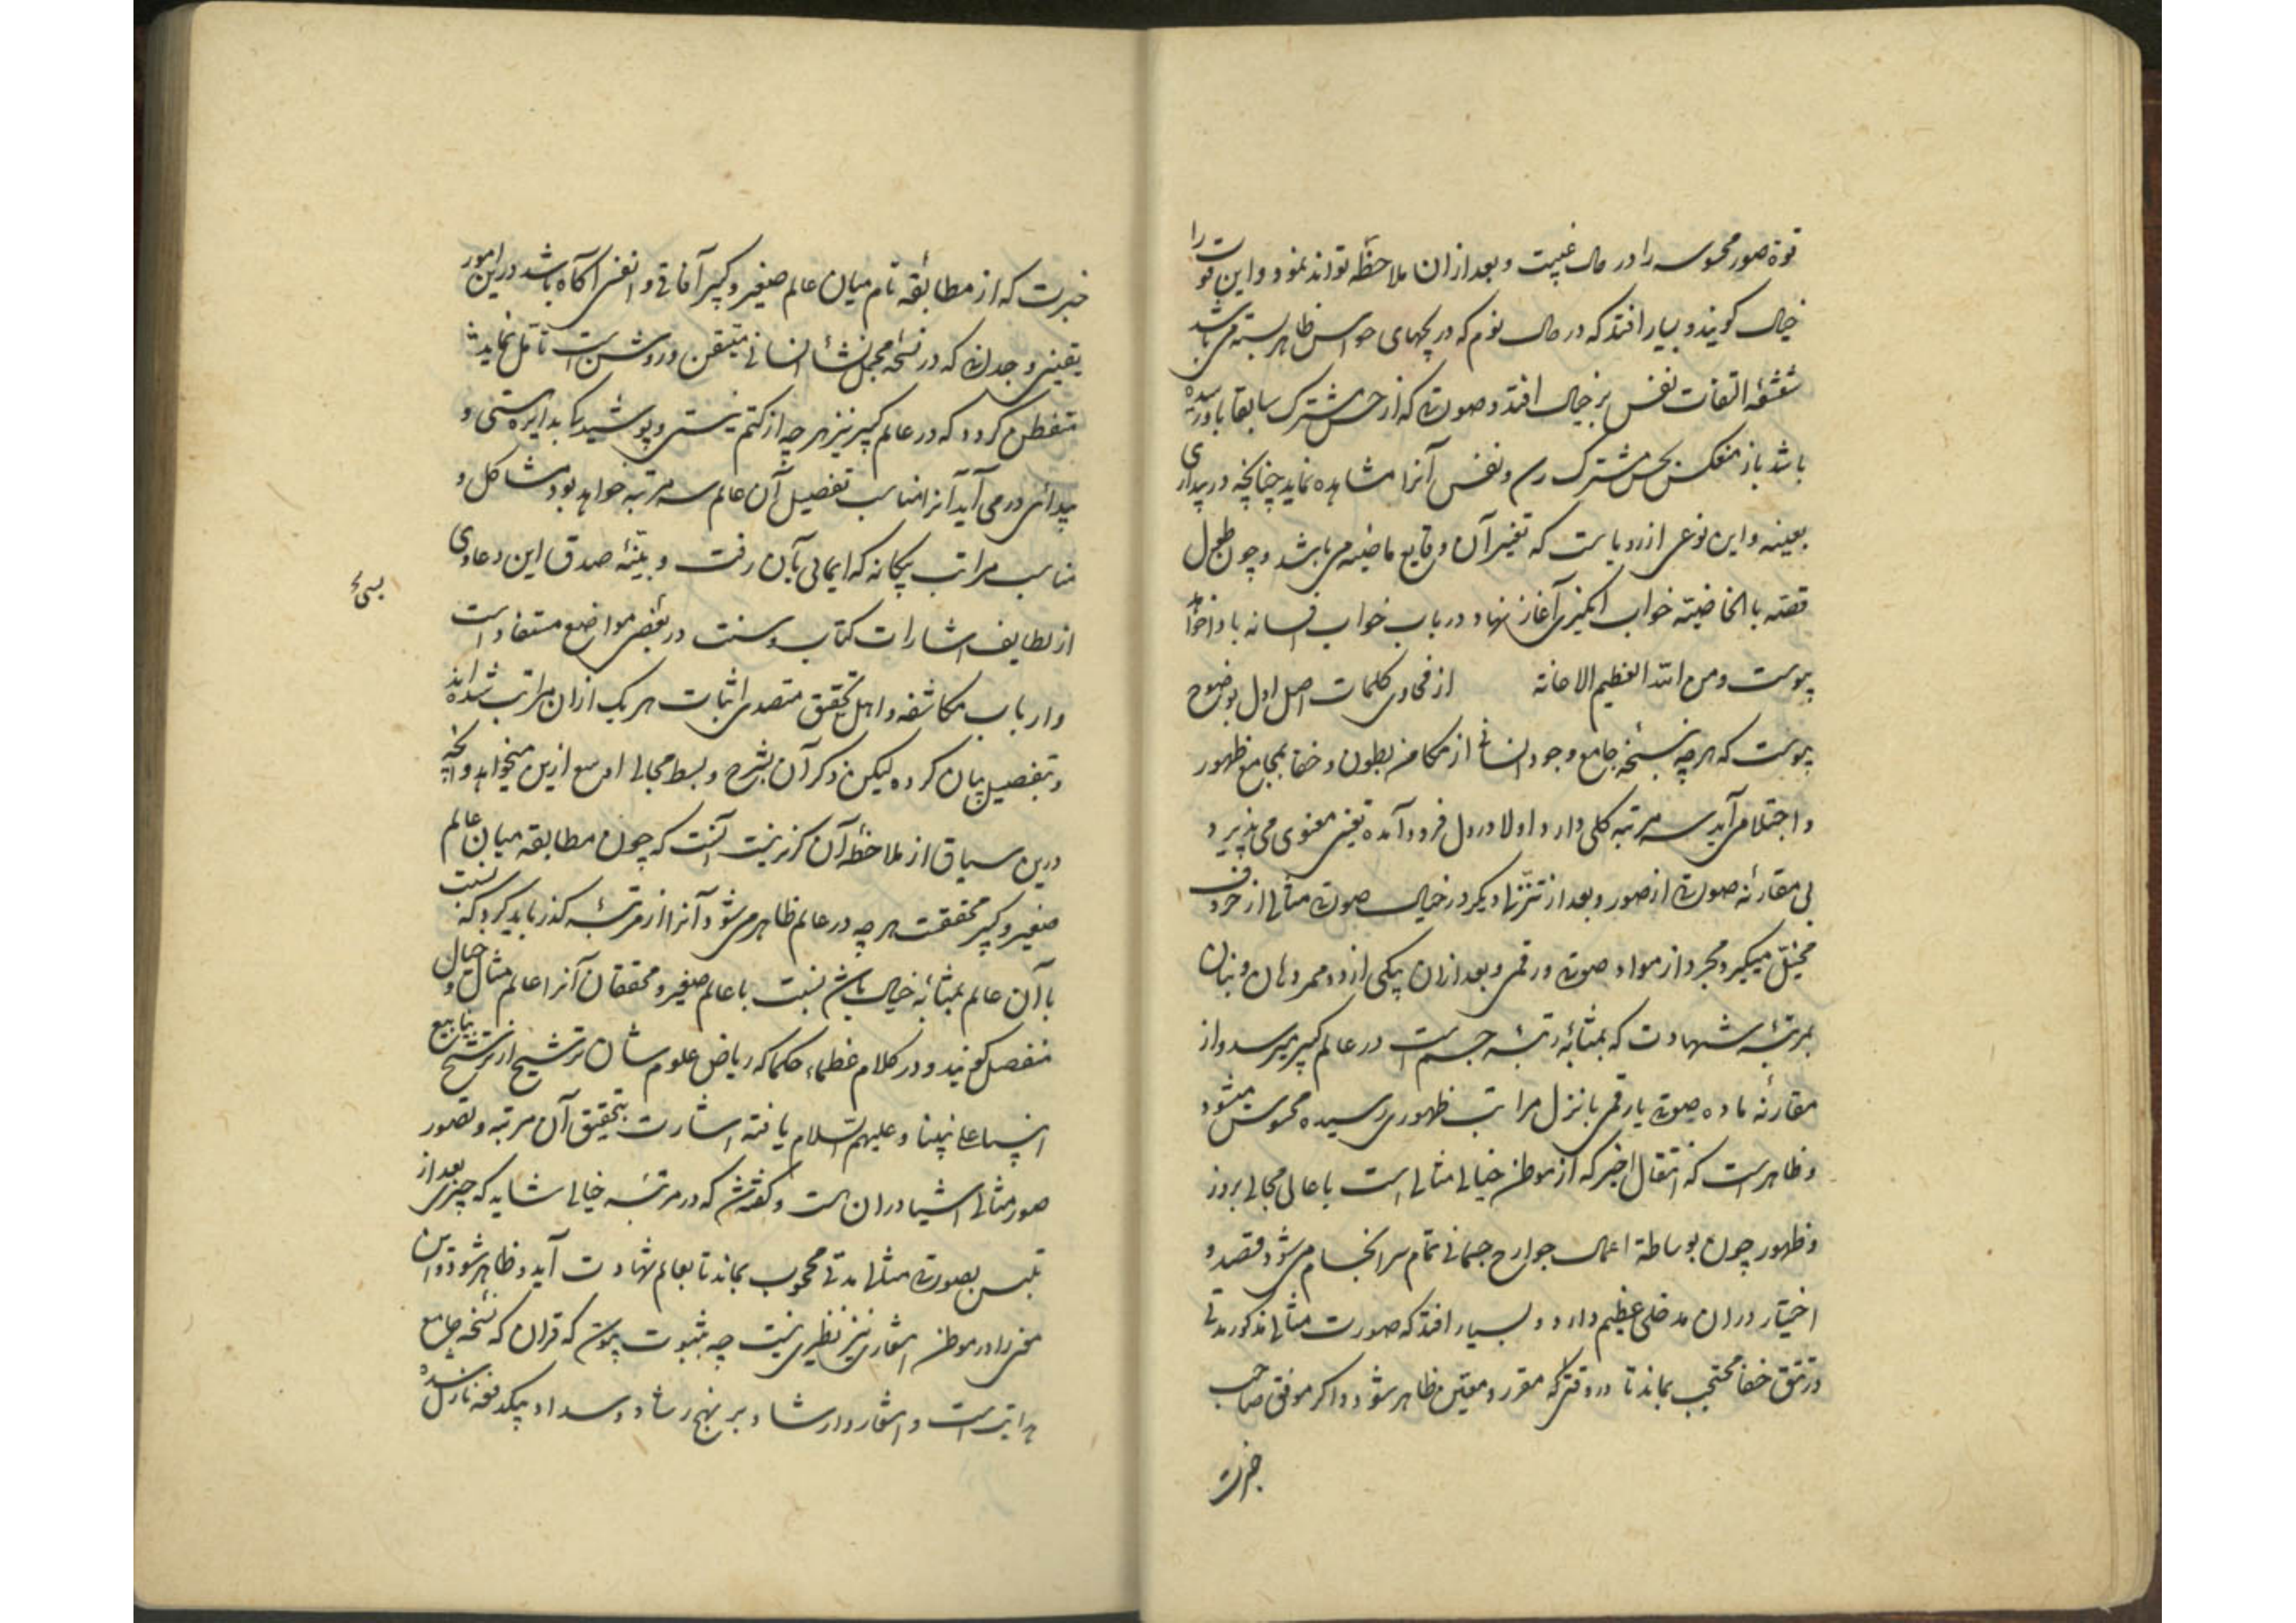 قوة صور محسوسه را در حال غیبت و بعد از ان ملاحظه تواند نمود و این قوت را
خیال کویند و بسیار افتد که در حال نوم که دریچهای حواس ظاهر بسته می باشد
شعشعهٔ التفات نفس بر خیال افتد و صورتی که از حس مشترک سابقا باو رسیده
باشد باز منعکس بحس مشترک رسد و نفس آنرا مشاهده نماید چنانچه در بیداری
بعینه و این نوعی از رویاست که تعبیر آن وقایع ماضیه می باشد و چون طول
قصه بالخاصیّة خواب انکیزی آغاز نهاد در باب خواب افسانه باواخر
پیوست و من الله العظیم الاعانة از فحاوی کلمات اصل اول بوضوح
پیوست که هرچه بنسخهٔ جامع وجود انسانی از مکامن بطون و خفا بمجامع ظهور
و اجتلا می آید سه مرتبه کلی دارد اولا در دل فرود آمده تعینی معنوی می پذیرد
بی مقارنهٔ صورتی از صور و بعد از تنزلها دیکر در خیال صورت مثالی از حروف
مخیّل میکیرد مجرد از مواد صوتی و رقمی و بعد از ان بیکی از دو ممر دهان و بنان
بمرتبهٔ شهادت که بمثابهٔ رتبهٔ جسم است در عالم کبیر میرسد و از
مقارنهٔ ماده صوتی یا رقمی بانزل مراتب ظهوری رسیده محسوس میشود
و ظاهر است که انتقال اخیر که از موطن خیالی مثالی است باعالی مجالی بروز
و ظهور چون بوساطة اعمال جوارح جسمانی تمام سرانجام می شود قصد و
اختیار در ان مدخلی عظیم دارد و بسیار افتد که صورت مثالی مذکور مدتی
در تتق خفا محتجب بماند تا در وقتی که مقرر و معیّن ظاهر شود و اکر موفق صاحب
خبرت
خبرت که از مطابقهٔ تام میان عالم صغیر و کبیر آفاقی و انفسی آکاه باشد در این امور
یقینی وجدانی که در نسخهٔ مجمل نشأ انسانی متیقن و روشن است تأمل نماید
متفطن کردد که در عالم کبیر نیز هرچه از کتم نیستی و پوشیدکی بدایرهٔ هستی و
پیدائی درمی آید آنرا مناسب تفصیل آن عالم سه مرتبه خواهد بود مشاکل و
مناسب مراتب سه کانه که ایمائی بآن رفت و بیّنهٔ صدق این دعاوی
از لطایف اشارات کتاب و سنت در بعضی مواضع مستفاد است
و ارباب مکاشفه و اهل تحقیق متصدی اثبات هر یک از ان مراتب شده اند
و بتفصیل بیان کرده لیکن ذکر آن بشرح و بسط مجالی اوسع ازین میخواهد و آنچه
درین سیاق از ملاحظهٔ آن کزیر نیست آنست که چون مطابقه میان عالم
صغیر و کبیر محققست هرچه در عالم ظاهر می شود آنرا از مرتبهٔ کذر باید کرد که نسبت
با آن عالم بمثابهٔ خیال باشد نسبت با عالم صغیر و محققان آنرا عالم مثال و خیال
منفصل کویند و در کلام عظماء حکما که ریاض علوم شان ترشیح از ترشح ینابیع
انبیا علی نبینا و علیهم السلام یافته اشارت بتحقیق آن مرتبه و تصور
صور مثالی اشیا در ان هست و کفتهٔ که در مرتبهٔ خیالی شاید که چیزی بعد از
تلبس بصورت مثالی مدتی محجوب بماند تا بعالم شهادت آید و ظاهر شود و این
معنی را در موطن اشعاری نیز نظیری نیست چه بثبوت پیوست که قران که نسخهٔ جامع
هدایتست و اشعار و ارشاد بر نهج رشاد و سداد بیکدفعه نازل شده